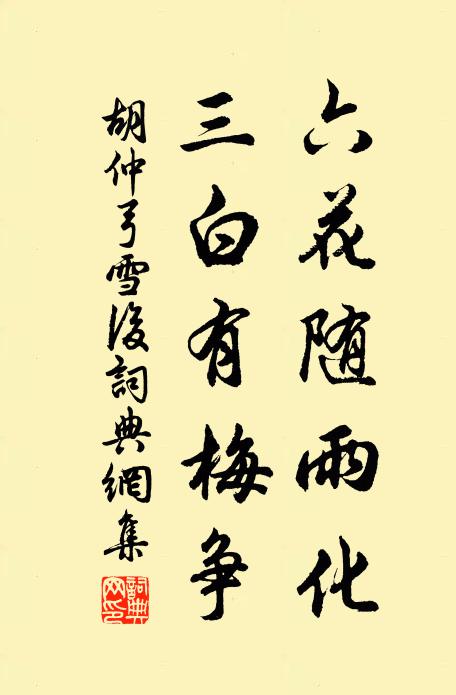 六花随雨化
三白有梅争
胡仲弓雪後詞典網集
詞典網印